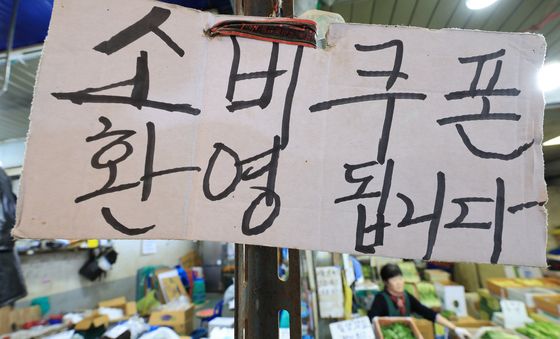 소비 쿠폰
환영 됩니다